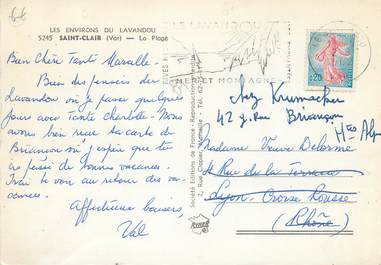 6€
LES ENVIRONS DU LAVANDOU
5245 SAINT-CLAIR (Var) — La Plage
Bien Chère Tante Marcelle.
Bien des pensées du
Lavandou où je passe quelques
jours avec Tante Charlotte. Nous
avons bien reçu ta carte de
Briançon où j'espère que tu
as passé de bonnes vacances.
à te voir au retour des va-
cances.
Affectueux baisers
Val
Société Editions de France - Reproduction interdite
2, Rue Copier, Marseille - Tél. 62
MER ET MONTAGNE
0,20
chez Krumacker
42 g. Rue Briançon
Htes Alpes
Madame Veuve Delorme
Rue de la Terrasse
Lyon. Croix Rousse
(Rhône)